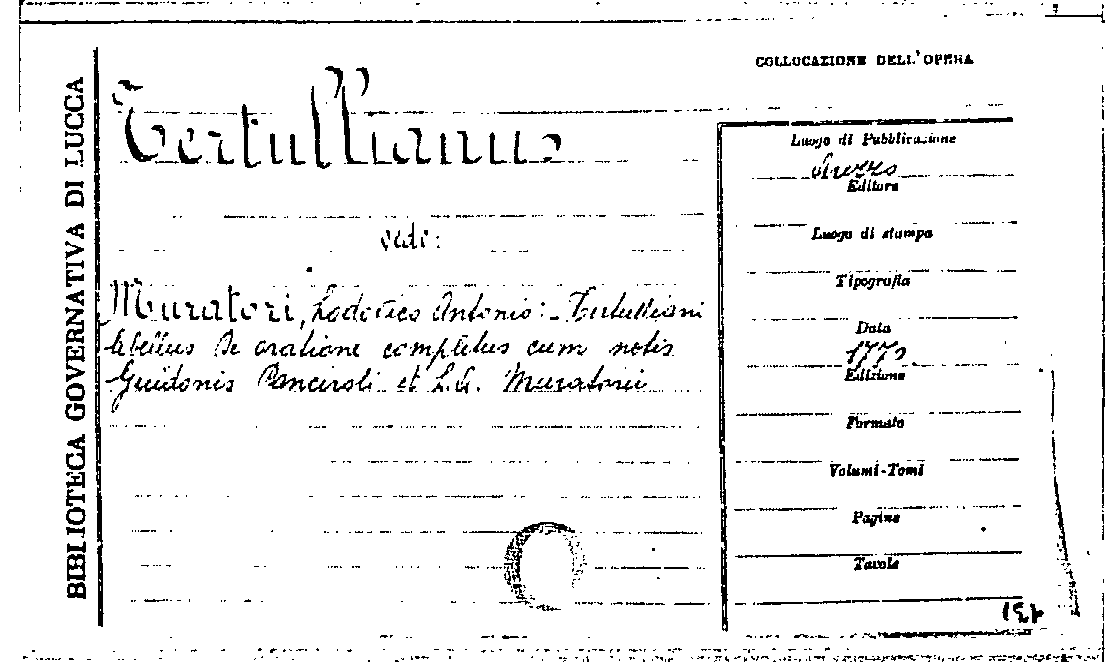 BIBLIOTECA GOVERNATIVA DI LUCCA
COLLOCAZIONE DELL'OPERA
Tertulliano
vedi:
Muratori, Lodovico Antonio: - Tertulliani
libellus de oratione completus cum notis
Guidonis Panciroli et L.A. Muratorii
Luogo di Pubblicazione
Arezzo
Editore
Luogo di stampa
Tipografia
Data
Edizione
Formato
Volumi-Tomi
Pagine
Tavole